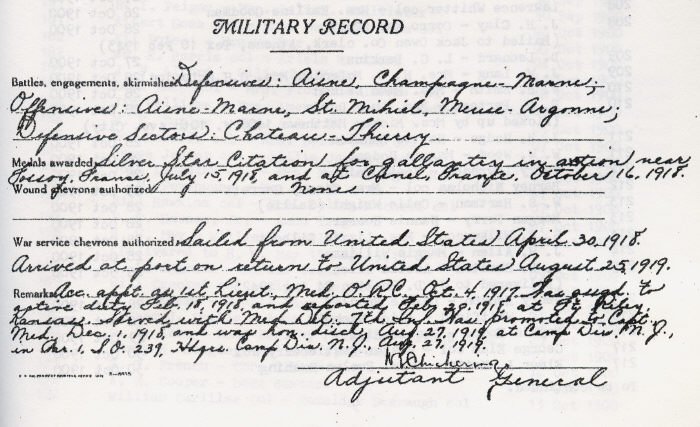 MILITARY RECORD
Battles, engagements, skirmishes Defensives: Aisne, Champagne-Marne;
Offensives: Aisne Marne, St. Mihiel, Meuse-Argonne;
Defensive Sectors: Chateau-Thierry
Medals awarded Silver Star Citation for gallantry in action near
Fossoy, France, July 15, 1918, and at Cunel, France, October 16, 1918.
Wound chevrons authorized None
War service chevrons authorized Sailed from United States April 30, 1918.
Arrived at port on return to United States August 25, 1919.
Remarks Acc. appt. as 1st Lieut, Med. O.R.C. Oct. 4, 1917. Was asgd. to
active duty Feb. 18, 1918 and reported Feb. 20, 1918 at Ft. Riley
Kansas. Served with Med. Det. 7th Inf. Was promoted to Capt.
Med. Dec. 1, 1918, and was hon. disch. Aug. 27, 1919 at Camp Dix, N.J.,
in Par. 1, S.O. 239, Hdqrs. Camp Dix, N.J., Aug. 27, 1919.
Adjutant General